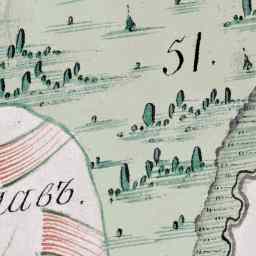 51.
лавъ.